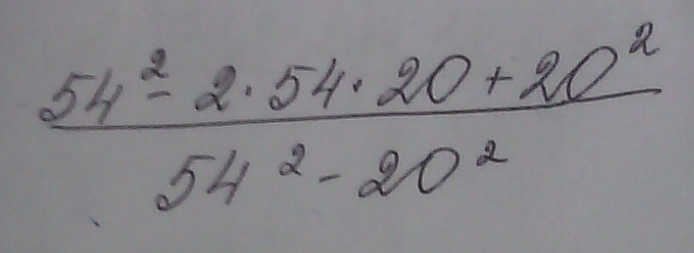 54² - 2 · 54 · 20 + 20²
54² - 20²